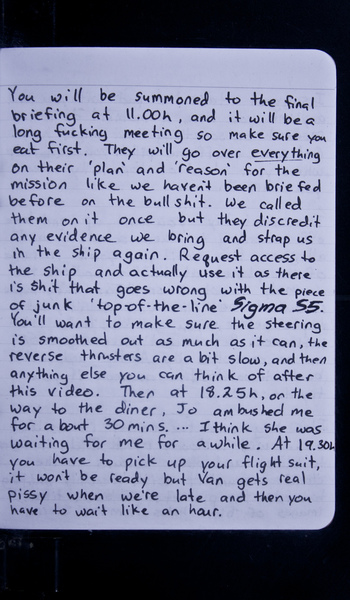 You will be summoned to the final
briefing at 11.00h, and it will be a
long fucking meeting so make sure you
eat first. They will go over everything
on their 'plan' and 'reason' for the
mission like we haven't been briefed
before on the bullshit. We called
them on it once but they discredit
any evidence we bring and strap us
in the ship again. Request access to
the ship and actually use it as there
is shit that goes wrong with the piece
of junk 'top-of-the-line' Sigma S5.
You'll want to make sure the steering
is smoothed out as much as it can, the
reverse thrusters are a bit slow, and then
anything else you can think of after
this video. Then at 18.25h, on the
way to the diner, Jo ambushed me
for about 30 mins. ... I think she was
waiting for me for awhile. At 19.30h
you have to pick up your flight suit,
it won't be ready but Van gets real
pissy when we're late and then you
have to wait like an hour.